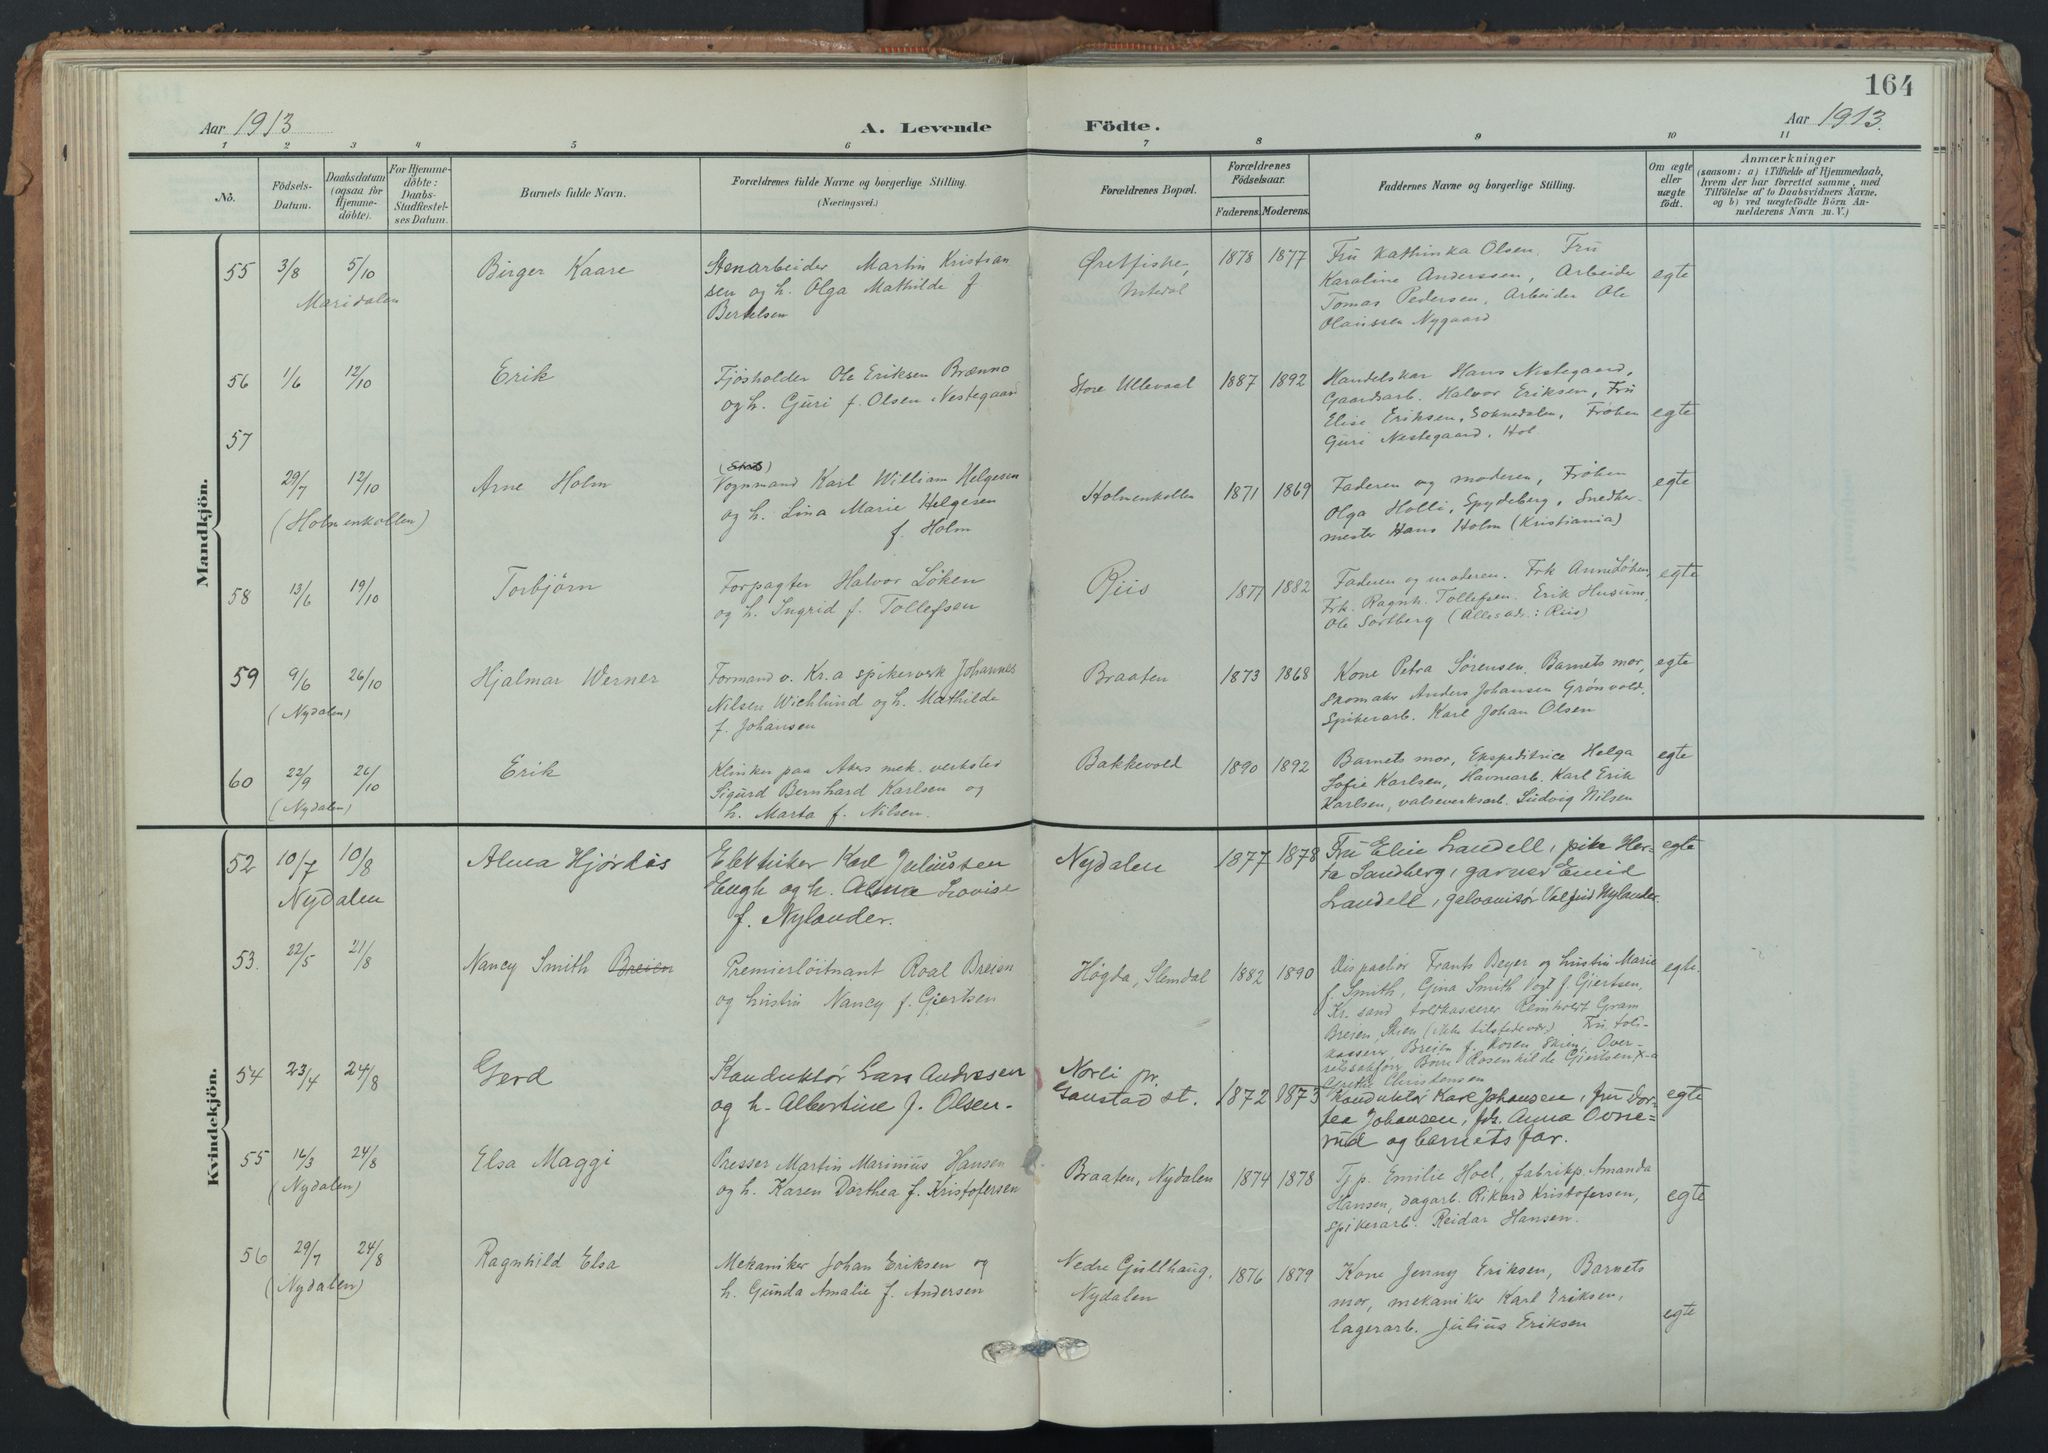 164
Aar 1913
A. Levende Födte.
Aar 1913.
1 2 3 4 5 6 7 8 9 10 11
No.
Födsels-Datum.
Daabsdatum (ogsaa for Hjemmedöbte).
For Hjemmedöbte: Daabs-Stadfæstelses Datum.
Barnets fulde Navn.
Forældrenes fulde Navne og borgerlige Stilling.
(Næringsvei.)
Forældrenes Bopæl.
Forældrenes Födselsaar.
Faderens. Moderens.
Faddernes Navne og borgerlige Stilling.
Om ægte eller uægte födt.
Anmærkninger
(saasom: a) i Tilfælde af Hjemmedaab,
hvem der har forrettet samme, med
Tilföielse af to Daabsvidners Navne,
og b) ved uægtefödte Börn Anmelderens Navn m. V.)
Mandkjön.
55 3/8 5/10 Birger Kaare
Maridalen
Stenarbeider Martin Kristian
sen og h. Olga Mathilde f
Bertelsen
Øretfiske,
Nitedal
1878 1877
Fru Kathinka Olsen. Fru
Karoline Anderssen, Arbeider
Tomas Pedersen, Arbeider Ole
Olaussen Nygaard
egte
56 1/6 12/10 Erik
Fjøsholder Ole Eriksen Brænno
og h. Guri f. Olsen Nestegaard
Store Ullevaal 1887 1892
Handelskar Hans Nestegaard,
Gaardsarb. Halvor Eriksen, Fru
Elise Eriksen, Soknedalen, Frøken
Guri Nestegaard, Hol
egte
57
29/7 12/10 Arne Holm
(Holmenkollen)
Vognmand Karl William Helgesen
og h. Lina Marie Helgesen
f. Holm
Holmenkollen 1871 1869
Faderen og moderen, Frøken
Olga Holli, Spydeberg, Snedker
mester Hans Holm (Kristiania)
egte
58 13/6 19/10 Torbjørn
Forpagter Halvor Løken
og h. Ingrid f. Tollefsen
Riis 1877 1882
Faderen og moderen. Frk Anne Løken,
Frk. Ragnh. Tollefsen. Erik Husum,
Ole Sortberg (Alles adr.: Riis)
egte
59 9/6 26/10 Hjalmar Werner
(Nydalen)
Formand v. Kr.a spikerverk Johannes
Nilsen Wichlund og h. Mathilde
f. Johansen
Braaten 1873 1868
Kone Petra Sørensen. Barnets mor,
Skomaker Anders Johansen Grønvold.
Spikerarb. Karl Johan Olsen
egte
60 22/9 26/10 Erik
(Nydalen)
Klinker paa Akers mek. verksted
Sigurd Bernhard Karlsen og
h. Marta f. Nilsen.
Bakkevold 1890 1892
Barnets mor, Ekspeditrice Helga
Sofie Karlsen, Havnearb. Karl Erik
Karlsen, valseverksarb. Ludvig Nilsen
egte
Kvindekjön.
52 10/7 10/8 Alma Hjørdis
Nydalen
Elektriker Karl Juliussen
Haugh og h. Alma Lovise
f. Nylander.
Nydalen 1877 1878
Fru Elin Landell, pike Her-
ta Sandberg, garver Emid
Landell, galvanisør Valfrid Nylander.
egte
53. 22/5 21/8 Nancy Smith Breien
Premierløitnant Roal Breien
og hustru Nancy f. Gjertsen
Høgda, Slemdal 1882 1890
Dispachør Frants Beyer og hustru Marie
f. Smith, Gina Smith Vogt f. Gjertsen,
Kr. sand toldkasserer Reinholdt Gram
Breien, Skien (ikke tilstedevær.) Fru told-
kasserer Breien f. Rosen Skien, Over-
retssakfører Børre Rosenkilde Gjertsen, X-a
Grethe Christensen
egte.
54 23/4 24/8 Gerd
Konduktør Lars Andresen
og h. Albertine f. Olsen.
Norli pr.
Gaustad st. 1872 1873
Konduktør Karl Johansen, fru Dor-
tea Johansen, frk. Anna Ovne-
rud og barnets far.
egte
55 16/3 24/8 Elsa Maggi
(Nydalen)
Presser Martin Marinius Hansen
og h. Karen Dorthea f. Kristofersen
Braaten, Nydalen 1874 1878
Tj.p. Emilie Hoel, fabrikp. Amanda
Hansen, dagarb. Rikard Kristofersen,
spikerarb. Reidar Hansen.
egte
56 29/7 24/8 Ragnhild Elsa
(Nydalen)
Mekaniker Johan Eriksen og
h. Gunda Amalie f. Andersen
Nedre Gullhaug,
Nydalen
1876 1879
Kone Jenny Eriksen, Barnets
mor, mekaniker Karl Eriksen,
lagerarb. Julius Eriksen
egte